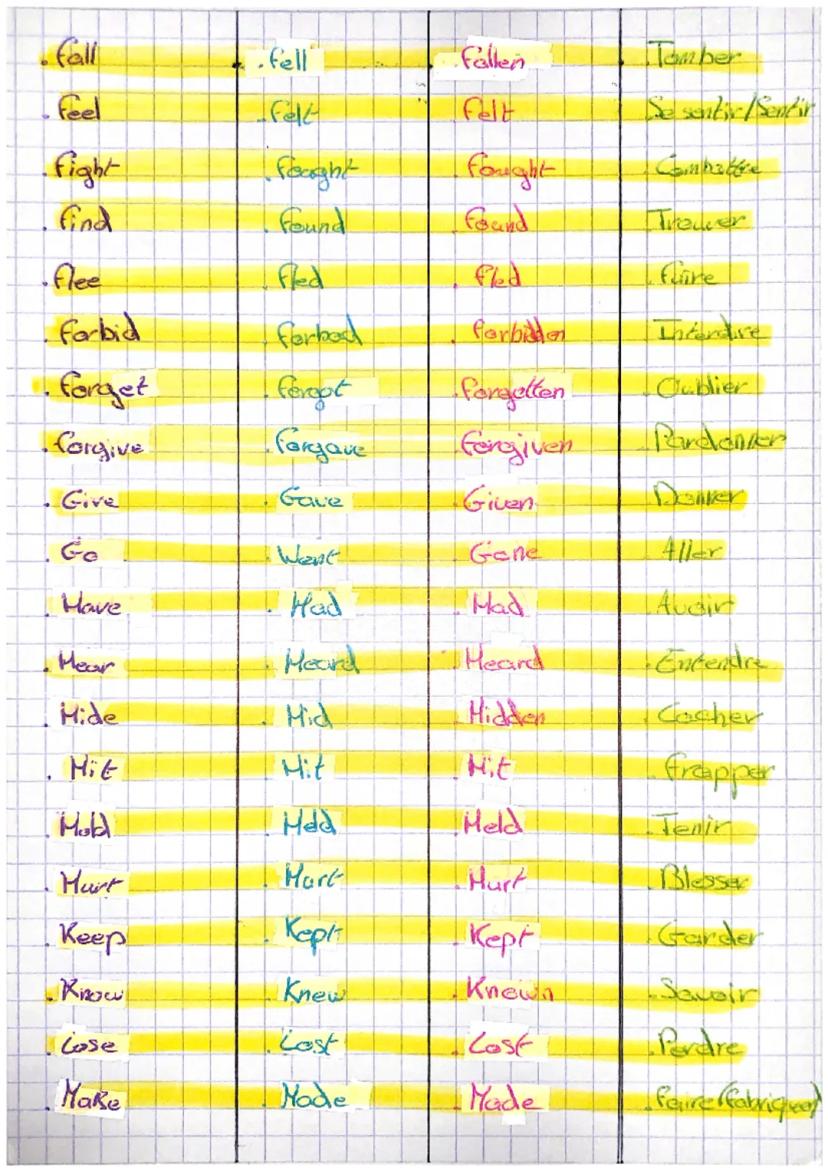 . fall . fell . fallen . Tomber
. feel . felt . felt . Se sentir/Sentir
. fight . fought . fought . Combattre
. find . found . found . Trouver
. flee . fled . fled . fuire
. forbid . forbad . forbidden . Interdire
. forget . forgot . forgotten . Oublier
. forgive . forgave . forgiven . Pardonner
. Give . Gave . Given . Donner
. Go . Went . Gone . Aller
. Have . Had . Had . Avoir
. Hear . Heard . Heard . Entendre
. Hide . Hid . Hidden . Cacher
. Hit . Hit . Hit . frapper
. Hold . Held . Held . Tenir
. Hurt . Hurt . Hurt . Blesser
. Keep . Kept . Kept . Garder
. Know . Knew . Known . Savoir
. Lose . Lost . Lost . Perdre
. Make . Made . Made . faire (fabriquer)